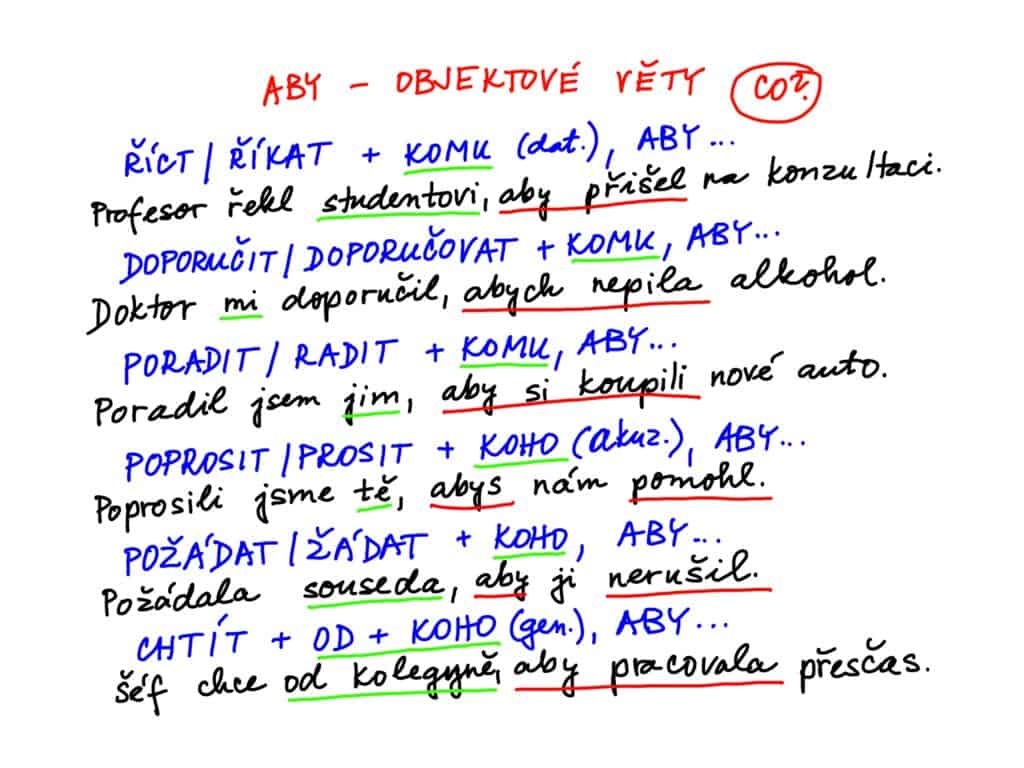 ABY – OBJEKTOVÉ VĚTY CO?
ŘÍCT / ŘÍKAT + KOMU (dat.), ABY...
Profesor řekl studentovi, aby přišel na konzultaci.
DOPORUČIT / DOPORUČOVAT + KOMU, ABY...
Doktor mi doporučil, abych nepila alkohol.
PORADIT / RADIT + KOMU, ABY...
Poradil jsem jim, aby si koupili nové auto.
POPROSIT / PROSIT + KOHO (akuz.), ABY...
Poprosili jsme tě, abys nám pomohl.
POŽÁDAT / ŽÁDAT + KOHO, ABY...
Požádala souseda, aby ji nerušil.
CHTÍT + OD + KOHO (gen.), ABY...
Šéf chce od kolegyně, aby pracovala přesčas.